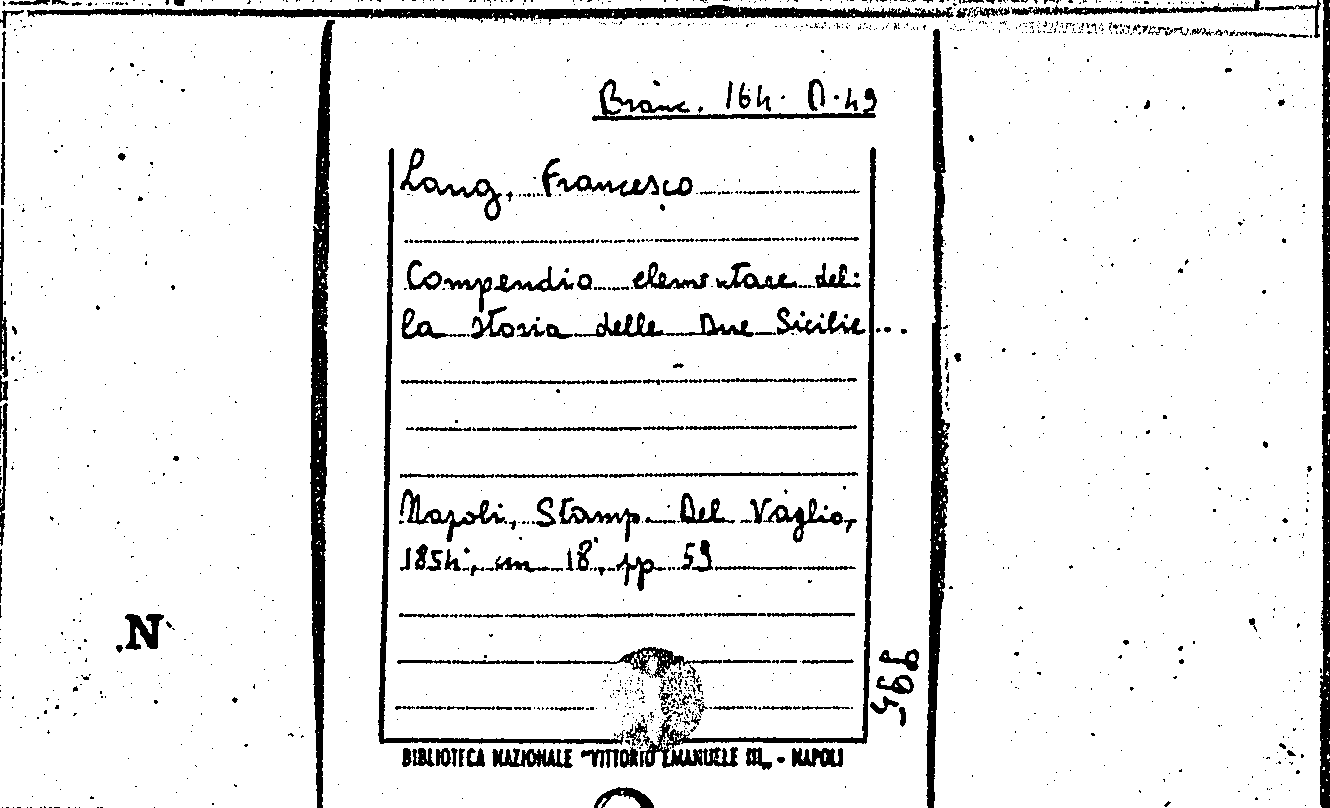 Branc. 164. D. 49
Lang, Francesco
Compendio elementare del:
la storia delle Due Sicilie...
Napoli, Stamp. Del Vaglio,
1854, in 18°, pp 59
N
BIBLIOTECA NAZIONALE "VITTORIO EMANUELE III„ - NAPOLI